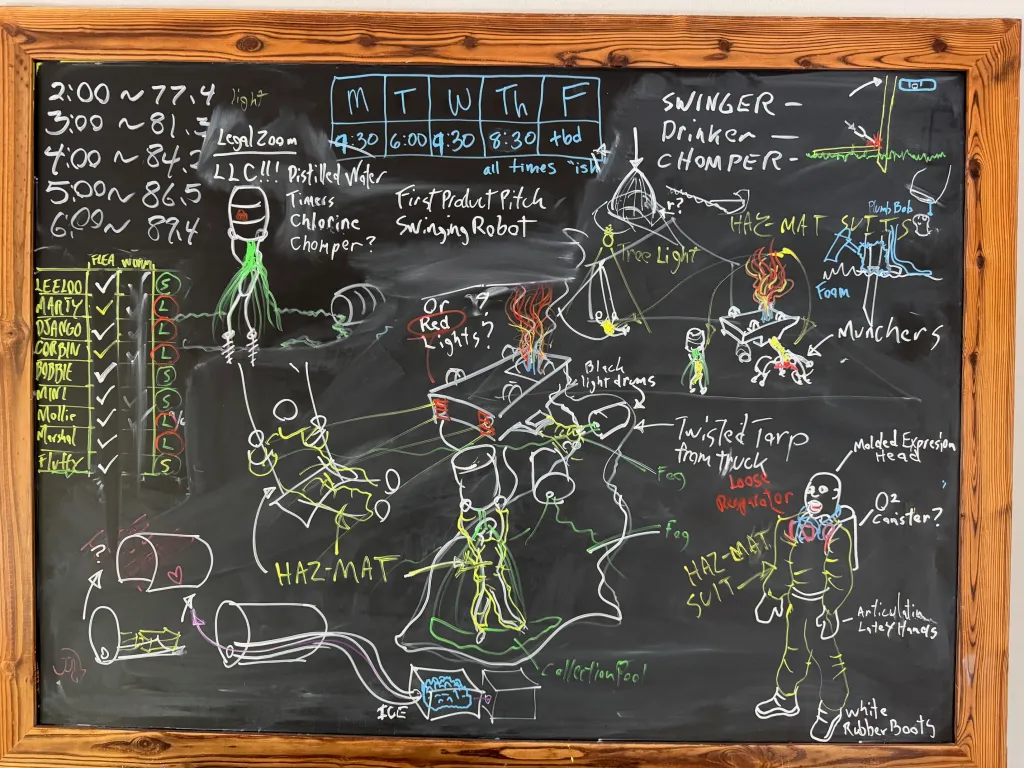 2:00 ~ 77.4
3:00 ~ 81.3
4:00 ~ 84.2
5:00 ~ 86.5
6:00 ~ 89.4
light
Legal Zoom
LLC!!! Distilled Water
Timers
Chlorine
Chomper?
M T W Th F
9:30 6:00 9:30 8:30 tbd
all times "ish
First Product Pitch
Swinging Robot
SWINGER -
Drinker -
CHOMPER -
Plumb Bob
HAZ-MAT SUITS
Foam
Munchers
r?
Tree Light
FLEA WORM
LEELOO ✓ S
MARTY ✓ L
DJANGO ✓ L
CORBIN ✓ L
BOBBIE ✓ S
MINI ✓ S
Mollie ✓ L
Marshal ✓ L
Fluffy ✓ S
Or
Red
Lights?
?
Black
light drums
Twisted Tarp
from truck
Fog
Fog
HAZ-MAT
Collection Pool
?
ICE
Loose
Respirator
Molded Expresion
Head
O2
Canister?
HAZ-MAT
SUIT
Articulatin
Latex Hands
White
Rubber Boots